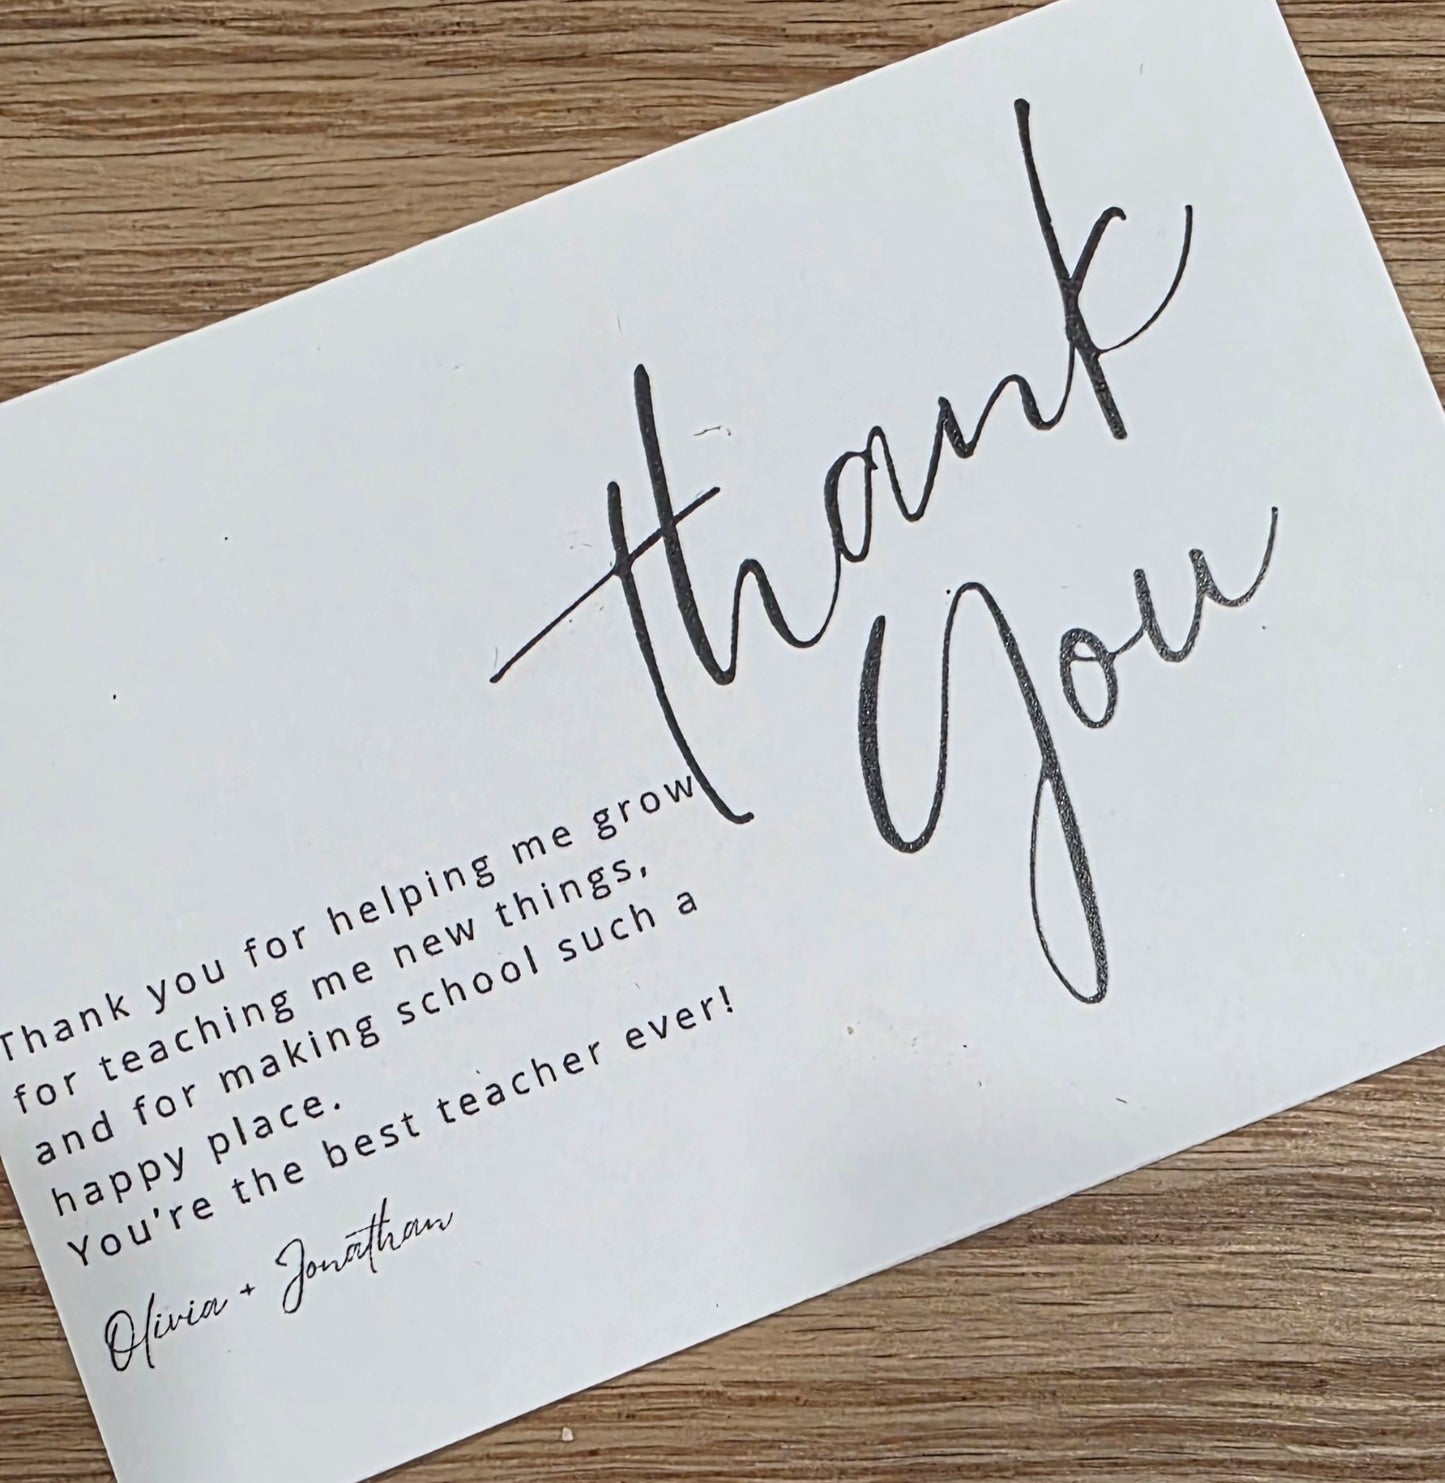 thank
you
Thank you for helping me grow
for teaching me new things,
and for making school such a
happy place.
You're the best teacher ever!
Olivia + Jonathan